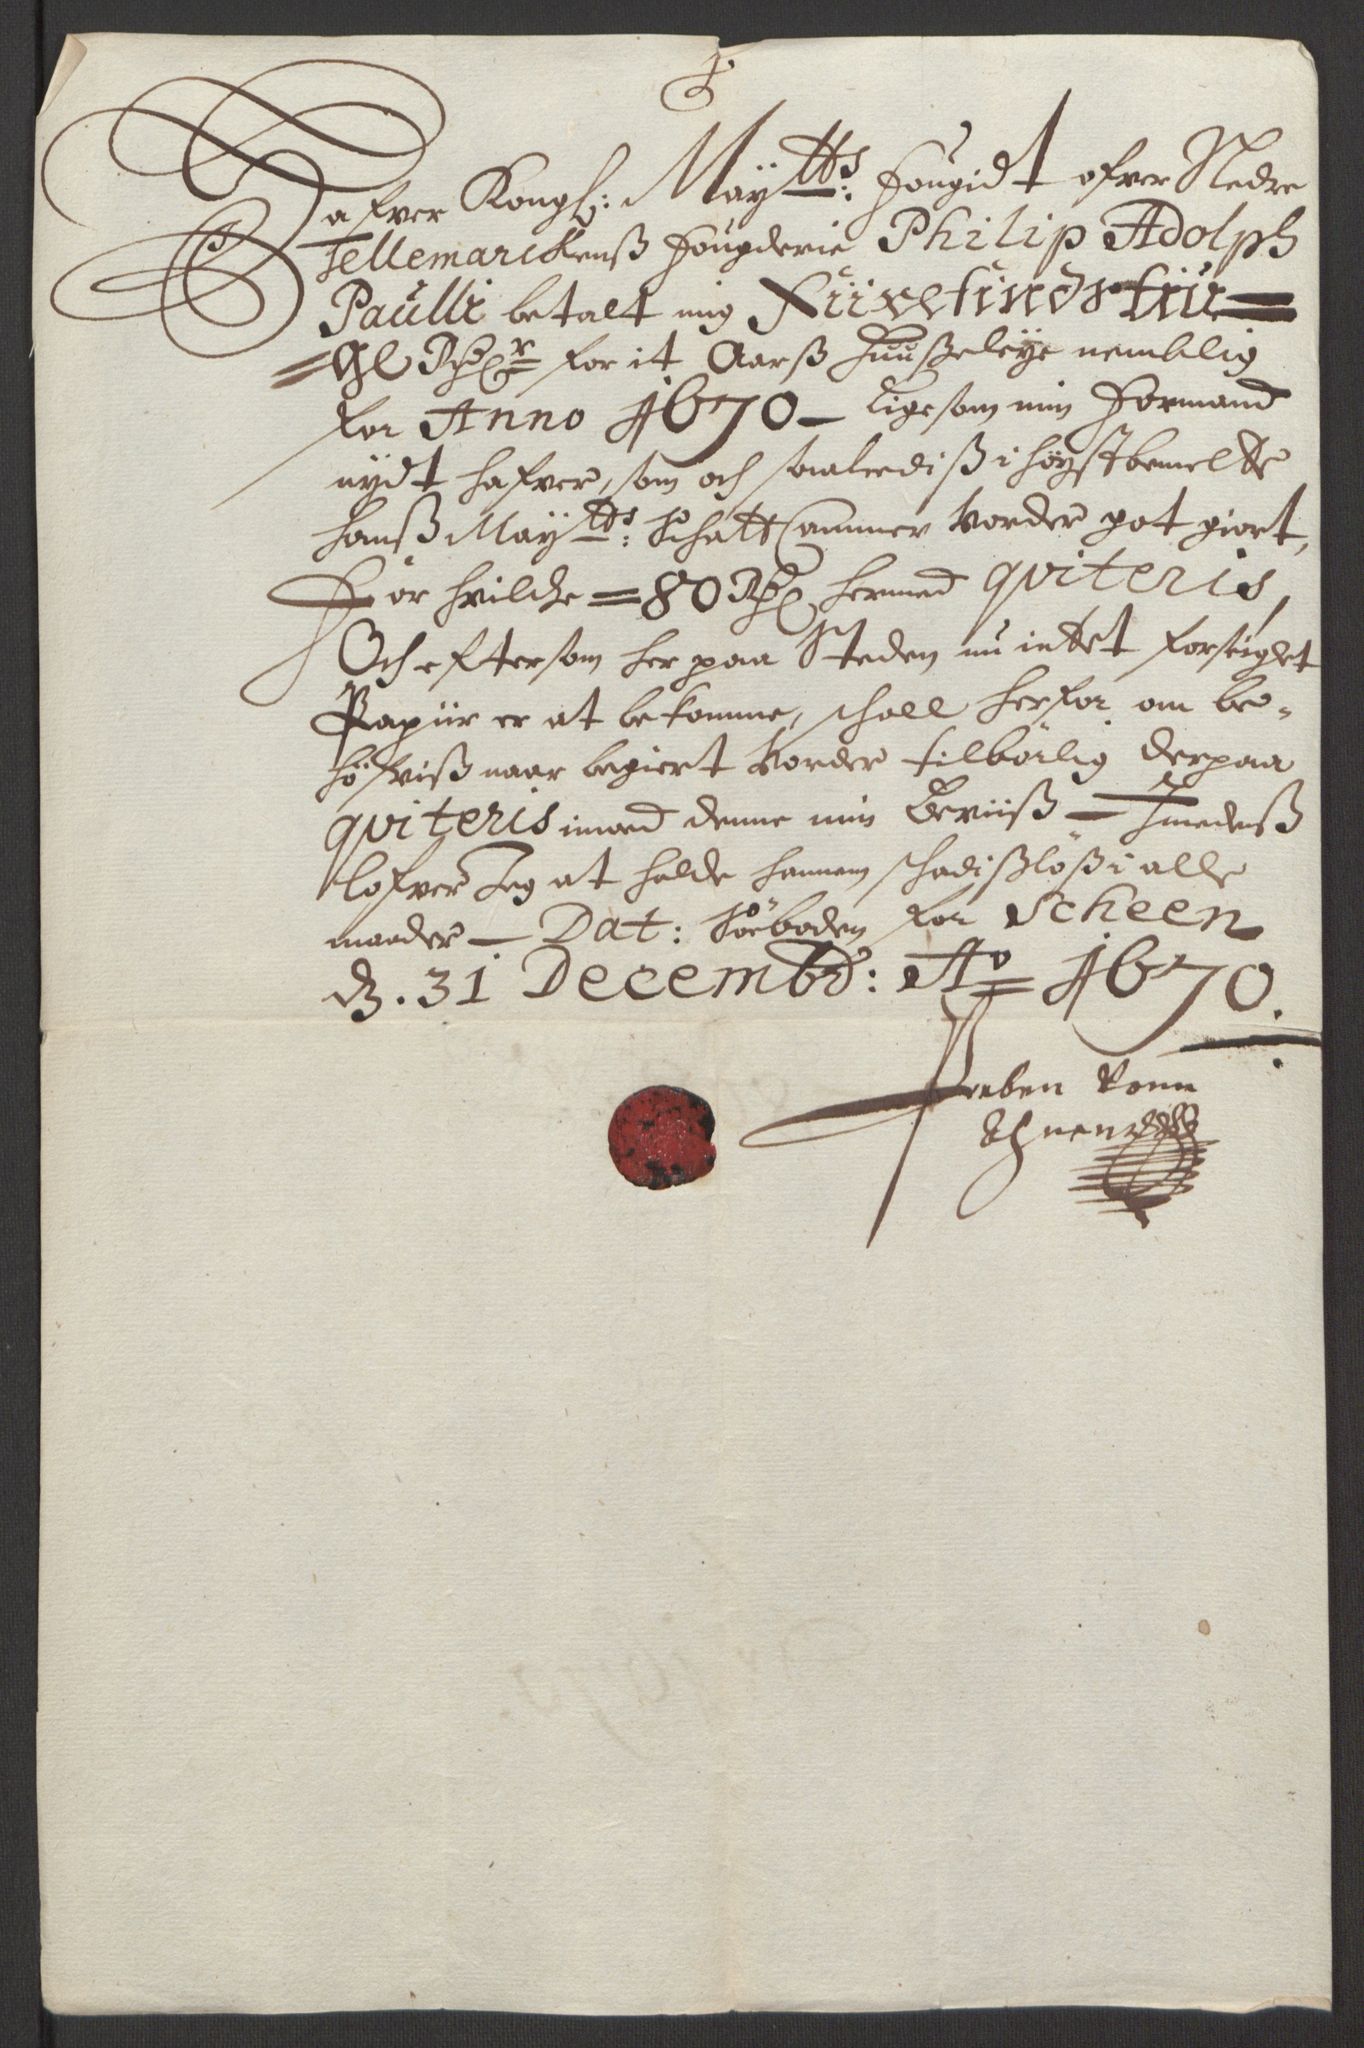 Hafver Kongl: Maÿtts: Fougidt ofver Nedre
Tellemarckenß Fougderie Philip Adolph
Paulli betalt mig Fiiresindstiu=
=ge Rdr for it Aarß Huußeleÿe nemblig
for Anno 1670 – Ligesom min Formand
nÿdt hafver, som och saaledis i høÿstbemelte
Hanß Maÿtts: SchattCammer vorder got giort,
For hvilche = 80 Rd, hermed qviteris,
Och eftersom her paa Steden nu intet forseiglet
Papiir er at bekomme, schall herfor om be-
høfviß naar begiert vorder tilbørlig derpaa
qviteris imod denne min Beviiß – Imedenß
lofver Jeg at holde hannem schadißløß i alle
maader – Dat: Søeboden for Scheen
d. 31 Decembr: Ao 1670.
Preben von
Ahnen